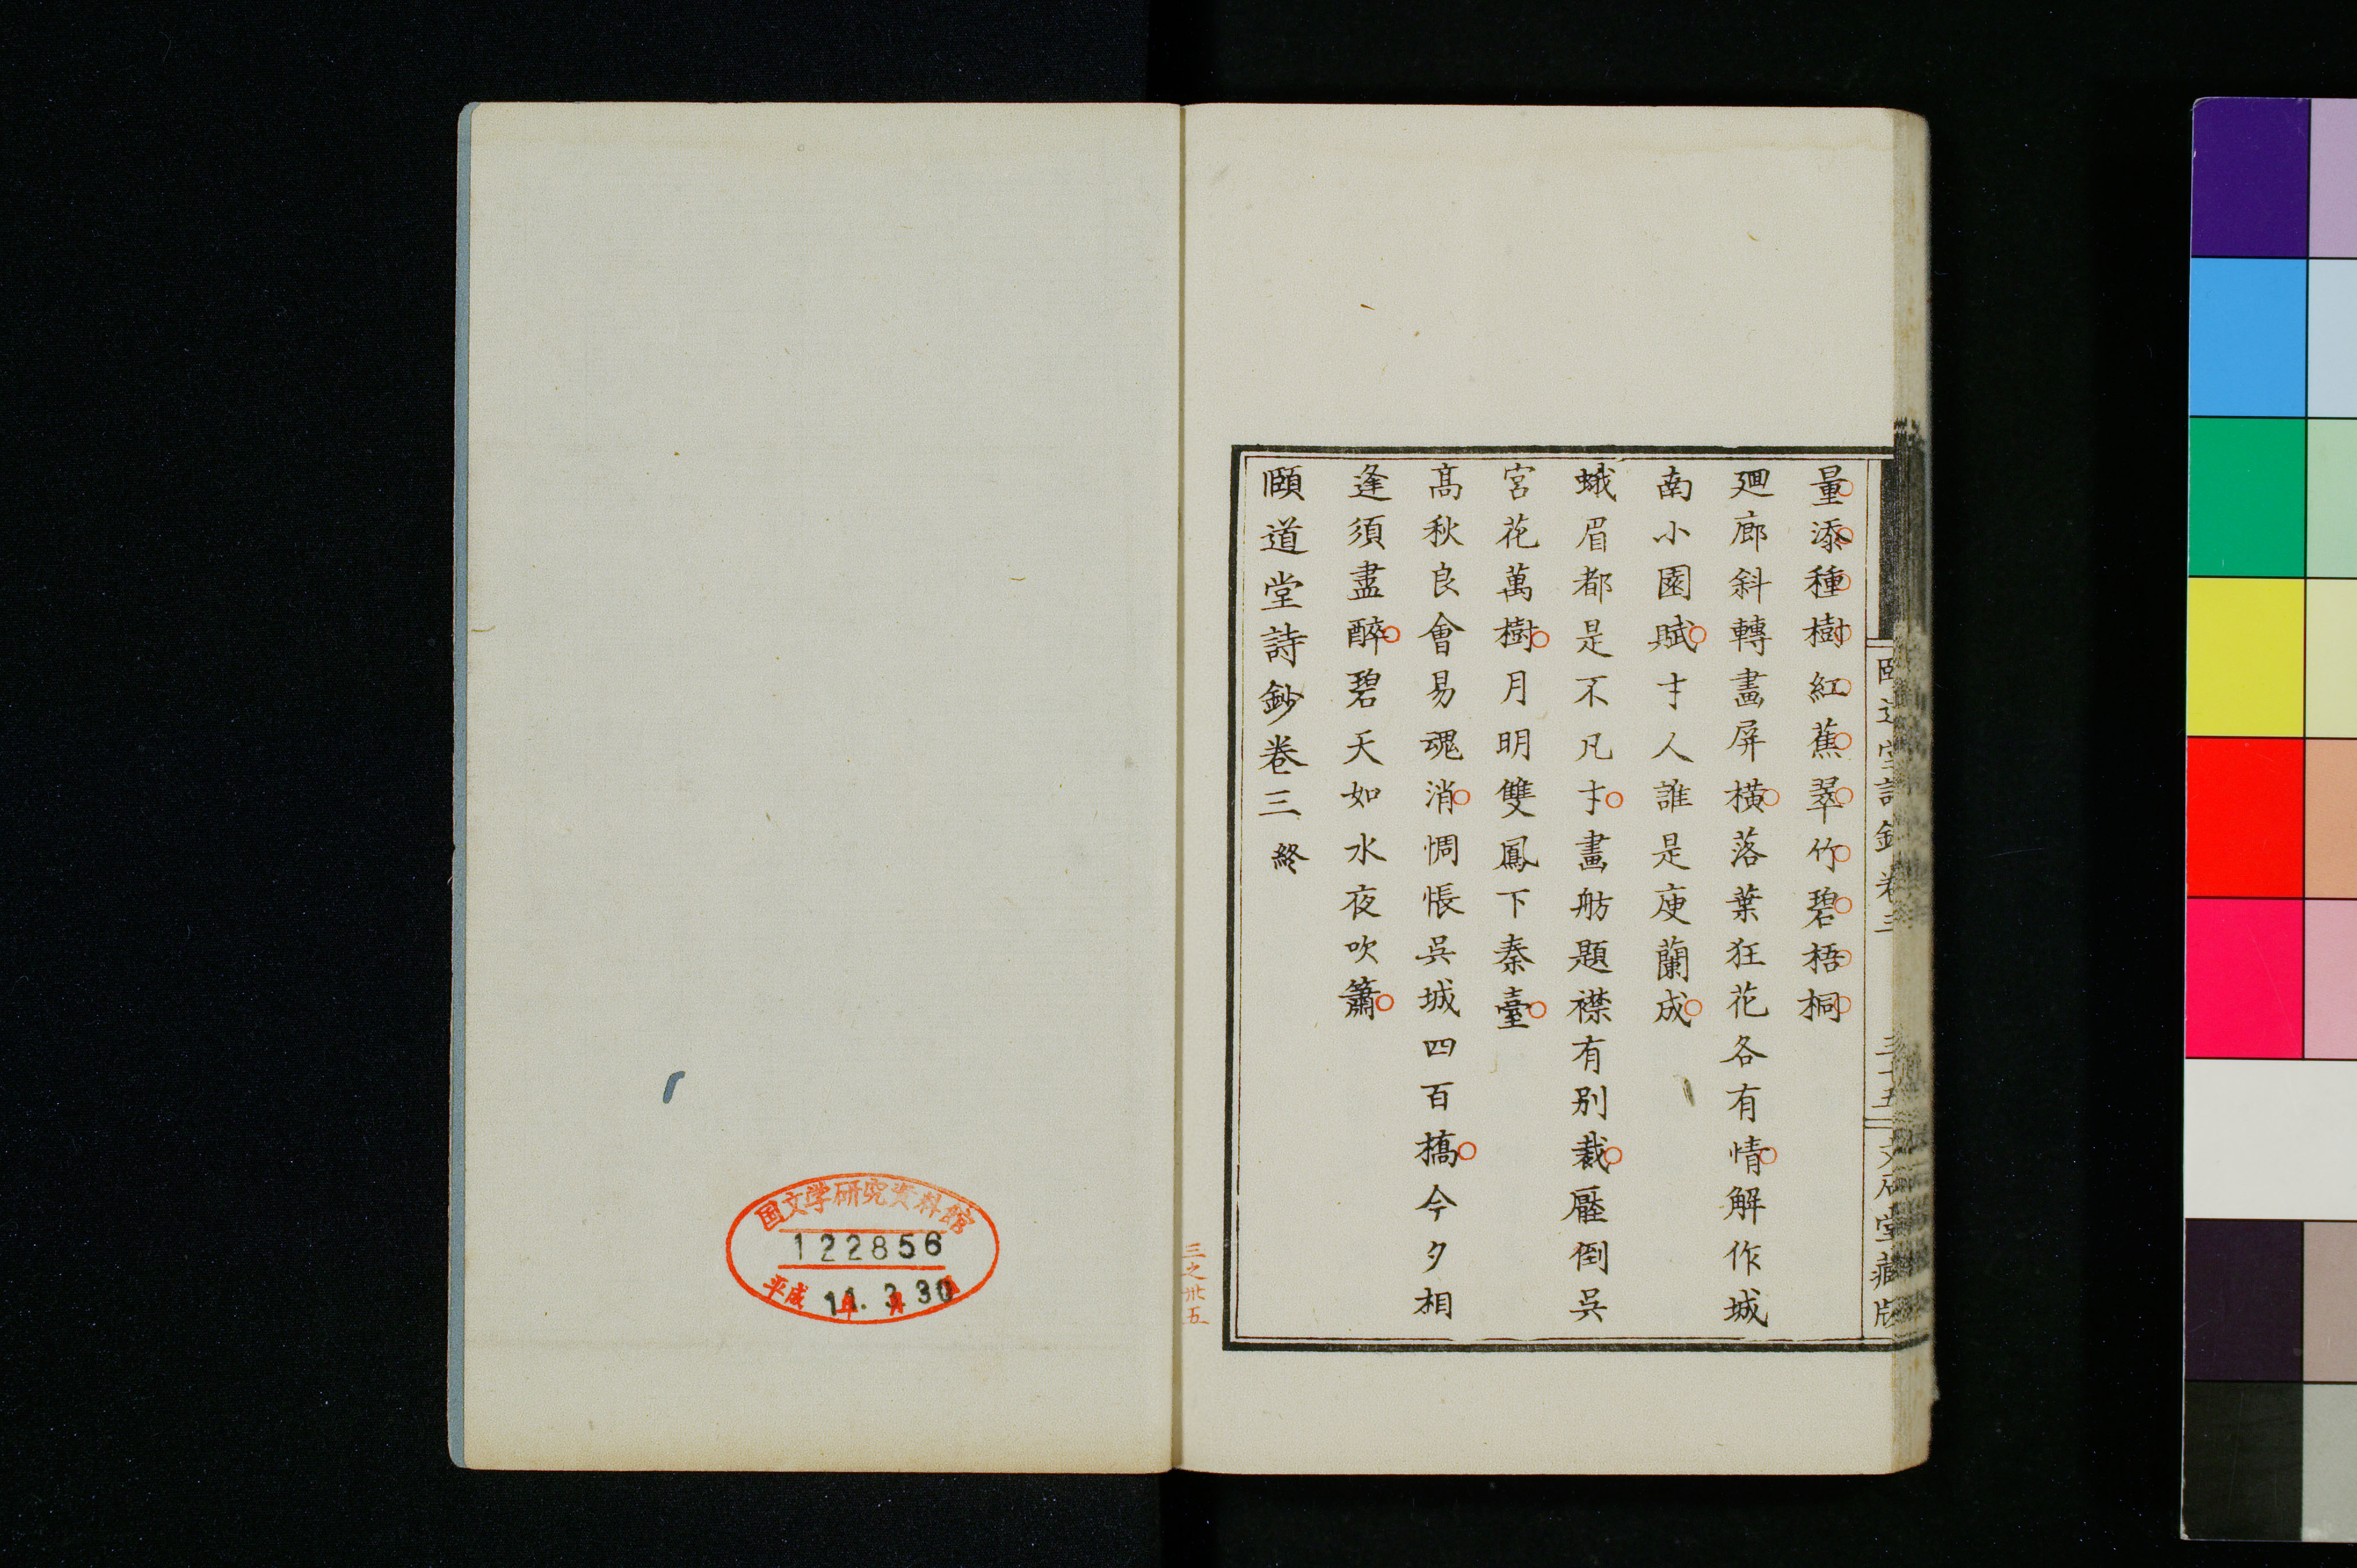 量添種樹紅蕉翠竹碧梧桐
廻廊斜轉畫屏橫落葉狂花各有情解作城
南小園賦才人誰是庾蘭成
蛾眉都是不凡才畫舫題襟有别裁壓倒吳
宮花萬樹月明雙鳳下秦臺
髙秋良會易魂消惆悵吳城四百橋今夕相
逢須盡醉碧天如水夜吹簫
頤道堂詩鈔卷三 終
頤道堂詩鈔 卷三 三十五
堂藏版
三之卅五
国文学研究資料館
122856
平成 11年 3月 30日